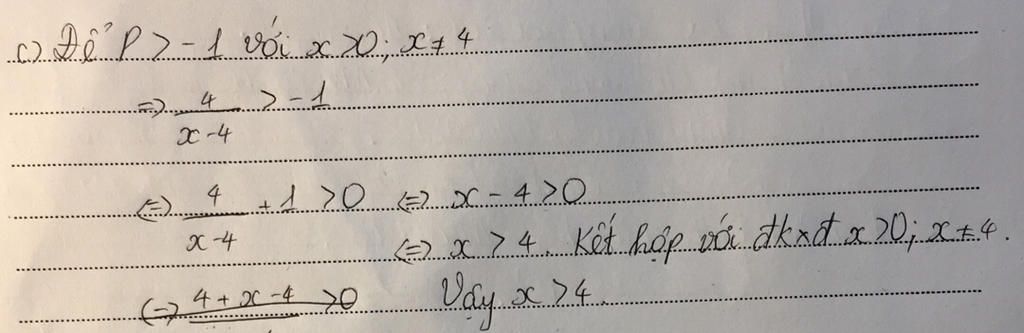 c) Để P > -1 với x > 0; x ≠ 4
=> 4/(x-4) > -1
<=> 4/(x-4) + 1 > 0
(=) (4 + x - 4) > 0
<=> x - 4 > 0
<=> x > 4. Kết hợp với đkxđ x > 0; x ≠ 4.
Vậy x > 4.